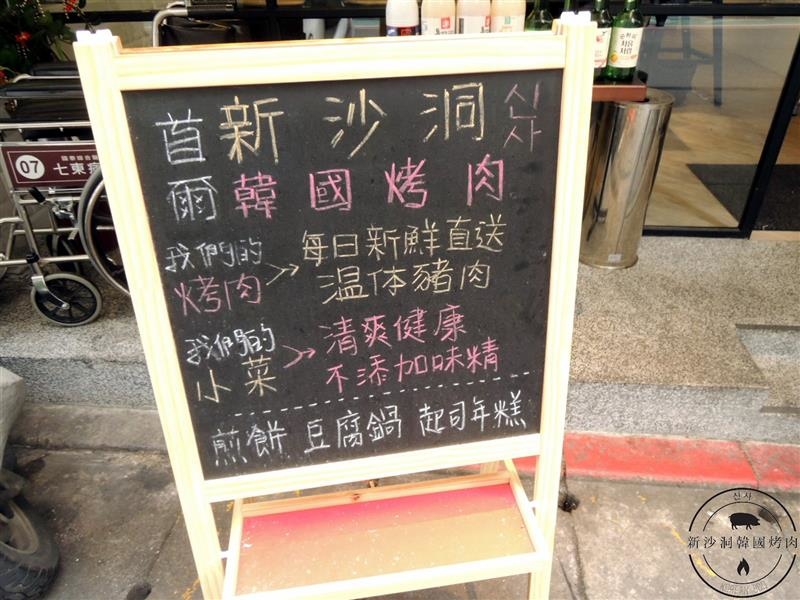 首爾
新沙洞 신사
韓國烤肉
我們的烤肉
每日新鮮直送
温体豬肉
我們的小菜
清爽健康
不添加味精
煎餅 豆腐鍋 起司年糕
07
七東
신사
新沙洞韓國烤肉